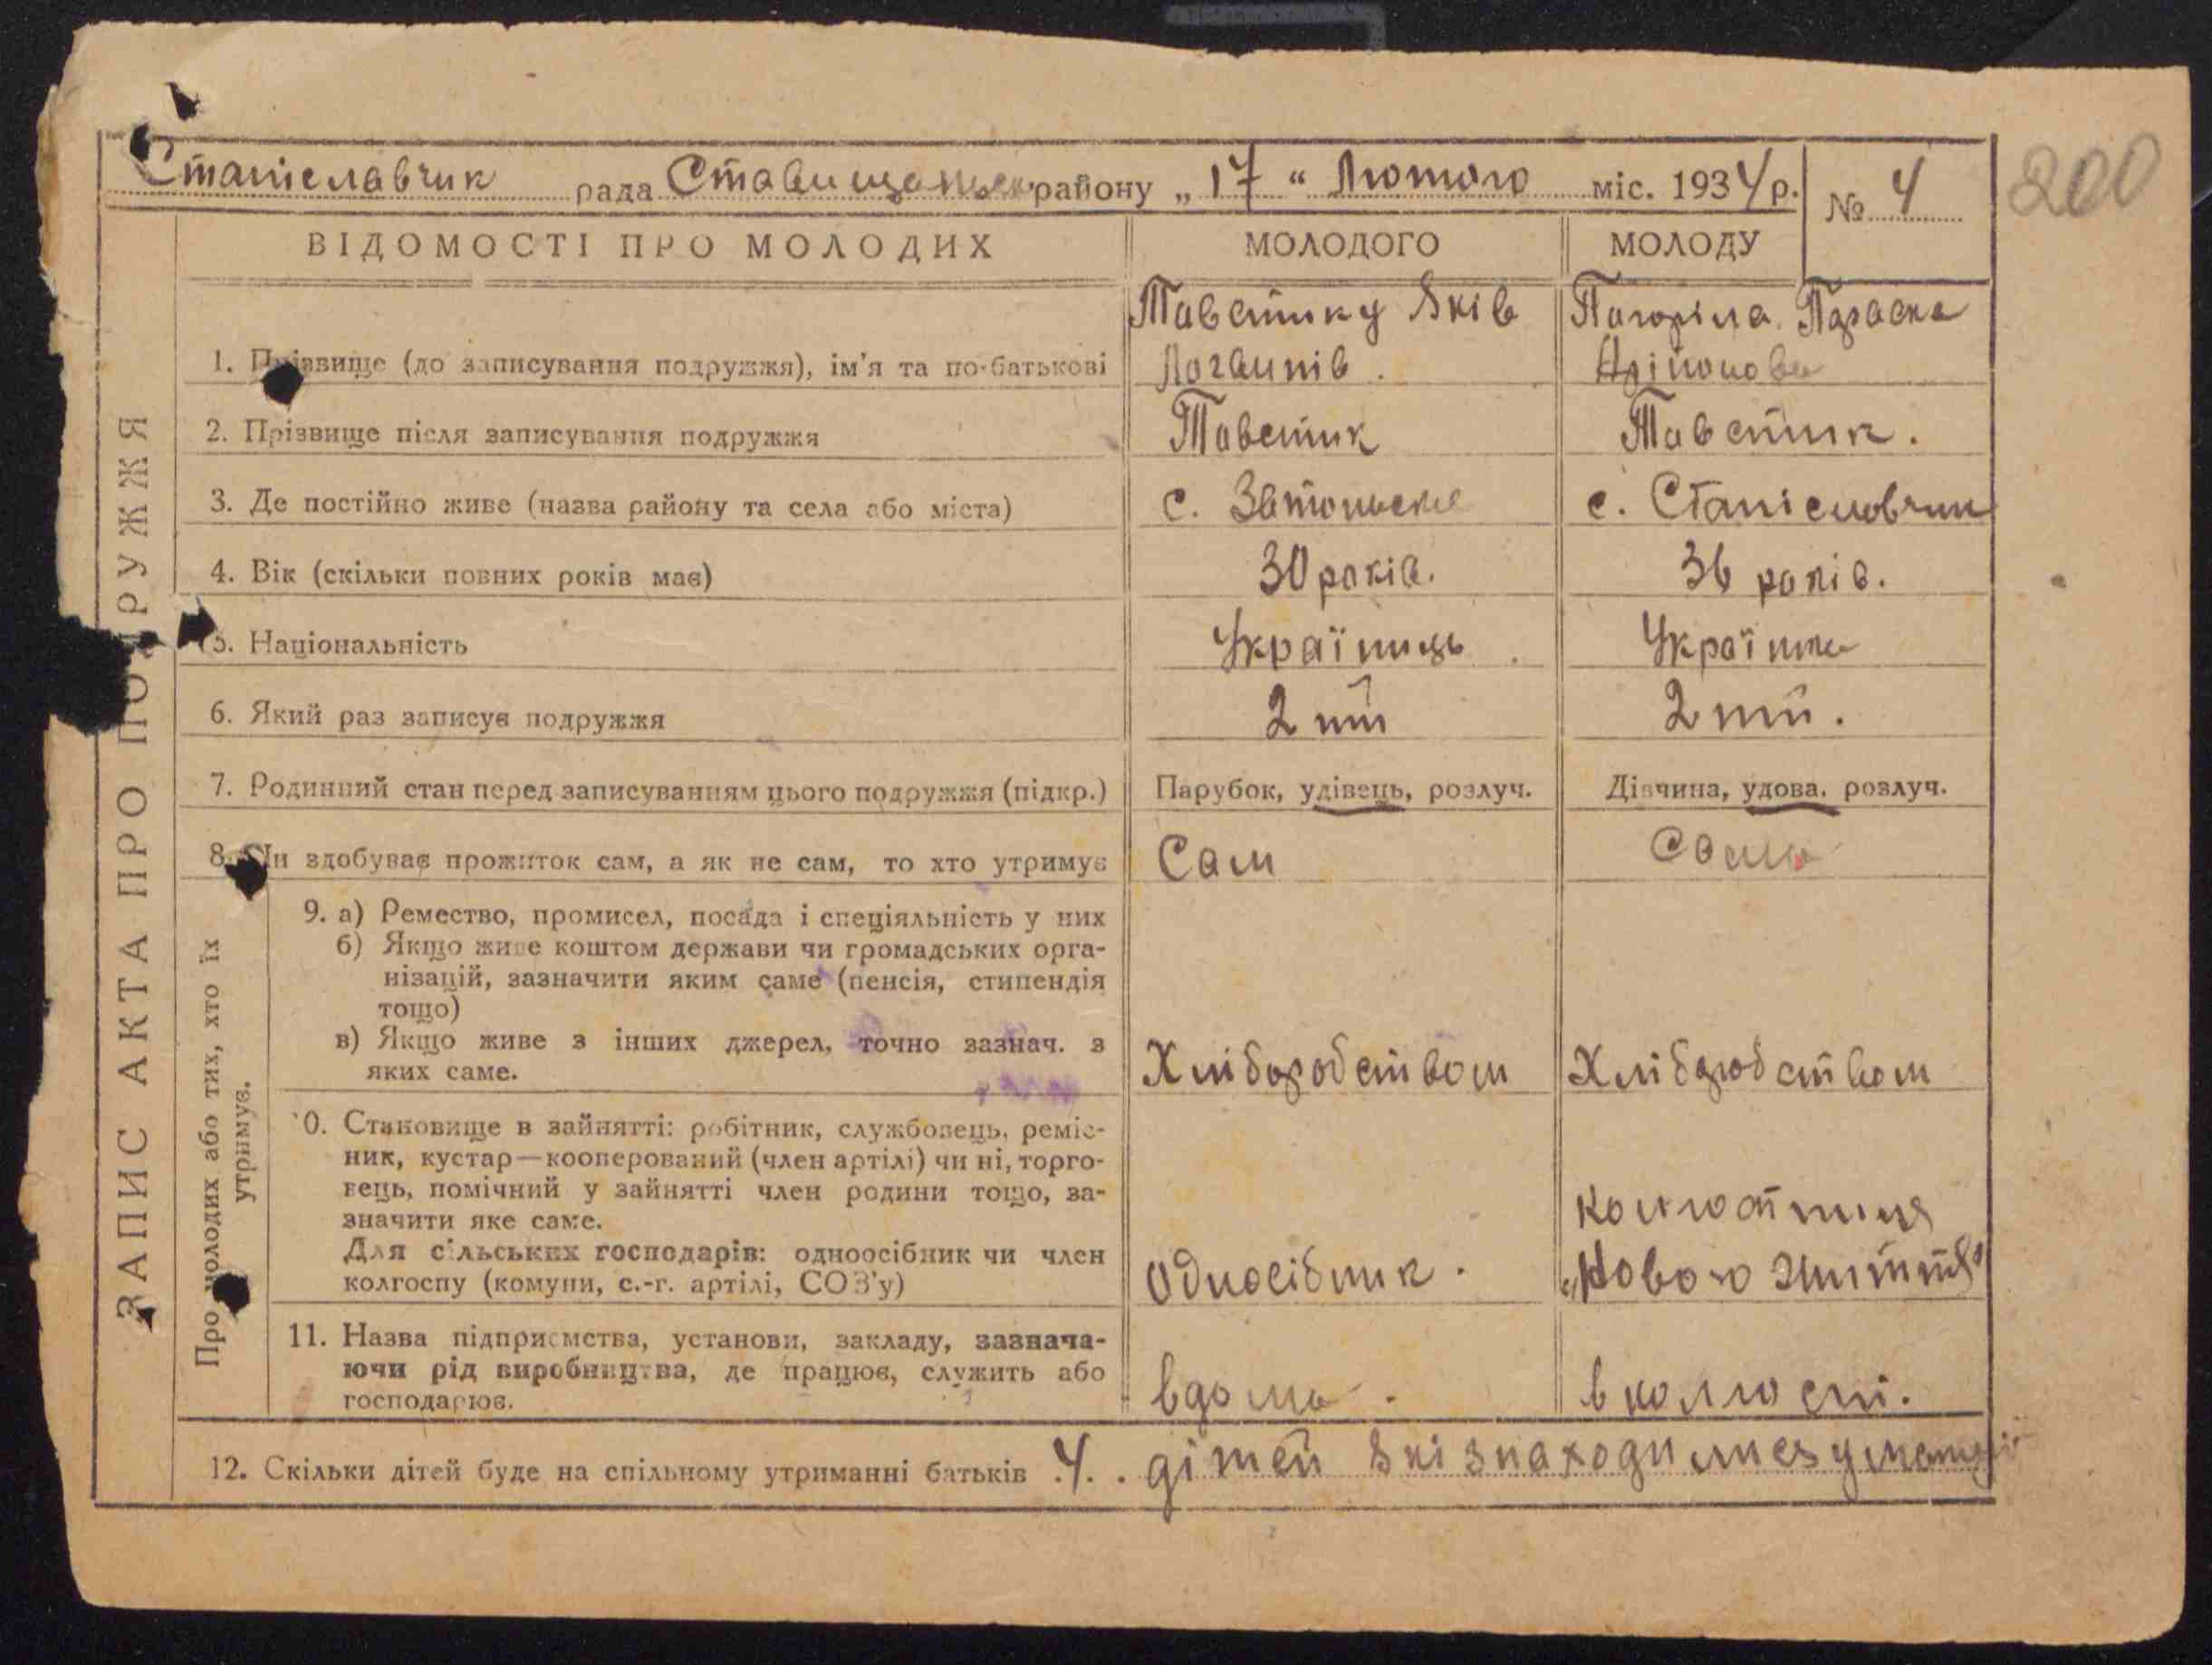 Станіславчик рада Ставищанськ району „ 17 “ Лютого міс. 1934 р. № 4
200
ЗАПИС АКТА ПРО ПОДРУЖЖЯ
ВІДОМОСТІ ПРО МОЛОДИХ МОЛОДОГО МОЛОДУ
Тавстику Яків Пагоріла Параска
1. Прізвище (до записування подружжя), ім'я та по-батькові Логвинів
2. Прізвище після записування подружжя Тавстик Тавстик.
3. Де постійно живе (назва району та села або міста) с. с. Станіславчик
4. Вік (скільки повних років має) 30 років. 36 років.
5. Національність Українець Українка
6. Який раз записує подружжя 2 тій 2 тій.
7. Родинний стан перед записуванням цього подружжя (підкр.) Парубок, удівець, розлуч. Дівчина, удова, розлуч.
8. Чи здобуває прожиток сам, а як не сам, то хто утримує Сам Сама
Про молодих або тих, хто їх
утримує.
9. а) Ремество, промисел, посада і спеціяльність у них
б) Якщо живе коштом держави чи громадських орга-
нізацій, зазначити яким саме (пенсія, стипендія
тощо)
в) Якщо живе з інших джерел, точно зазнач. з
яких саме. Хліборобством Хліборобством
10. Становище в зайнятті: робітник, службовець, реміс-
ник, кустар—кооперований (член артілі) чи ні, торго-
вець, помічний у зайнятті член родини тощо, за-
значити яке саме.
Для сільських господарів: одноосібник чи член
колгоспу (комуни, с.-г. артілі, СОЗ'у) Односібник. „Нового життя"
11. Назва підприємства, установи, закладу, зазнача-
ючи рід виробництва, де працює, служить або
господарює. вдома. в колгоспі.
12. Скільки дітей буде на спільному утриманні батьків 4. дітей які знаходились